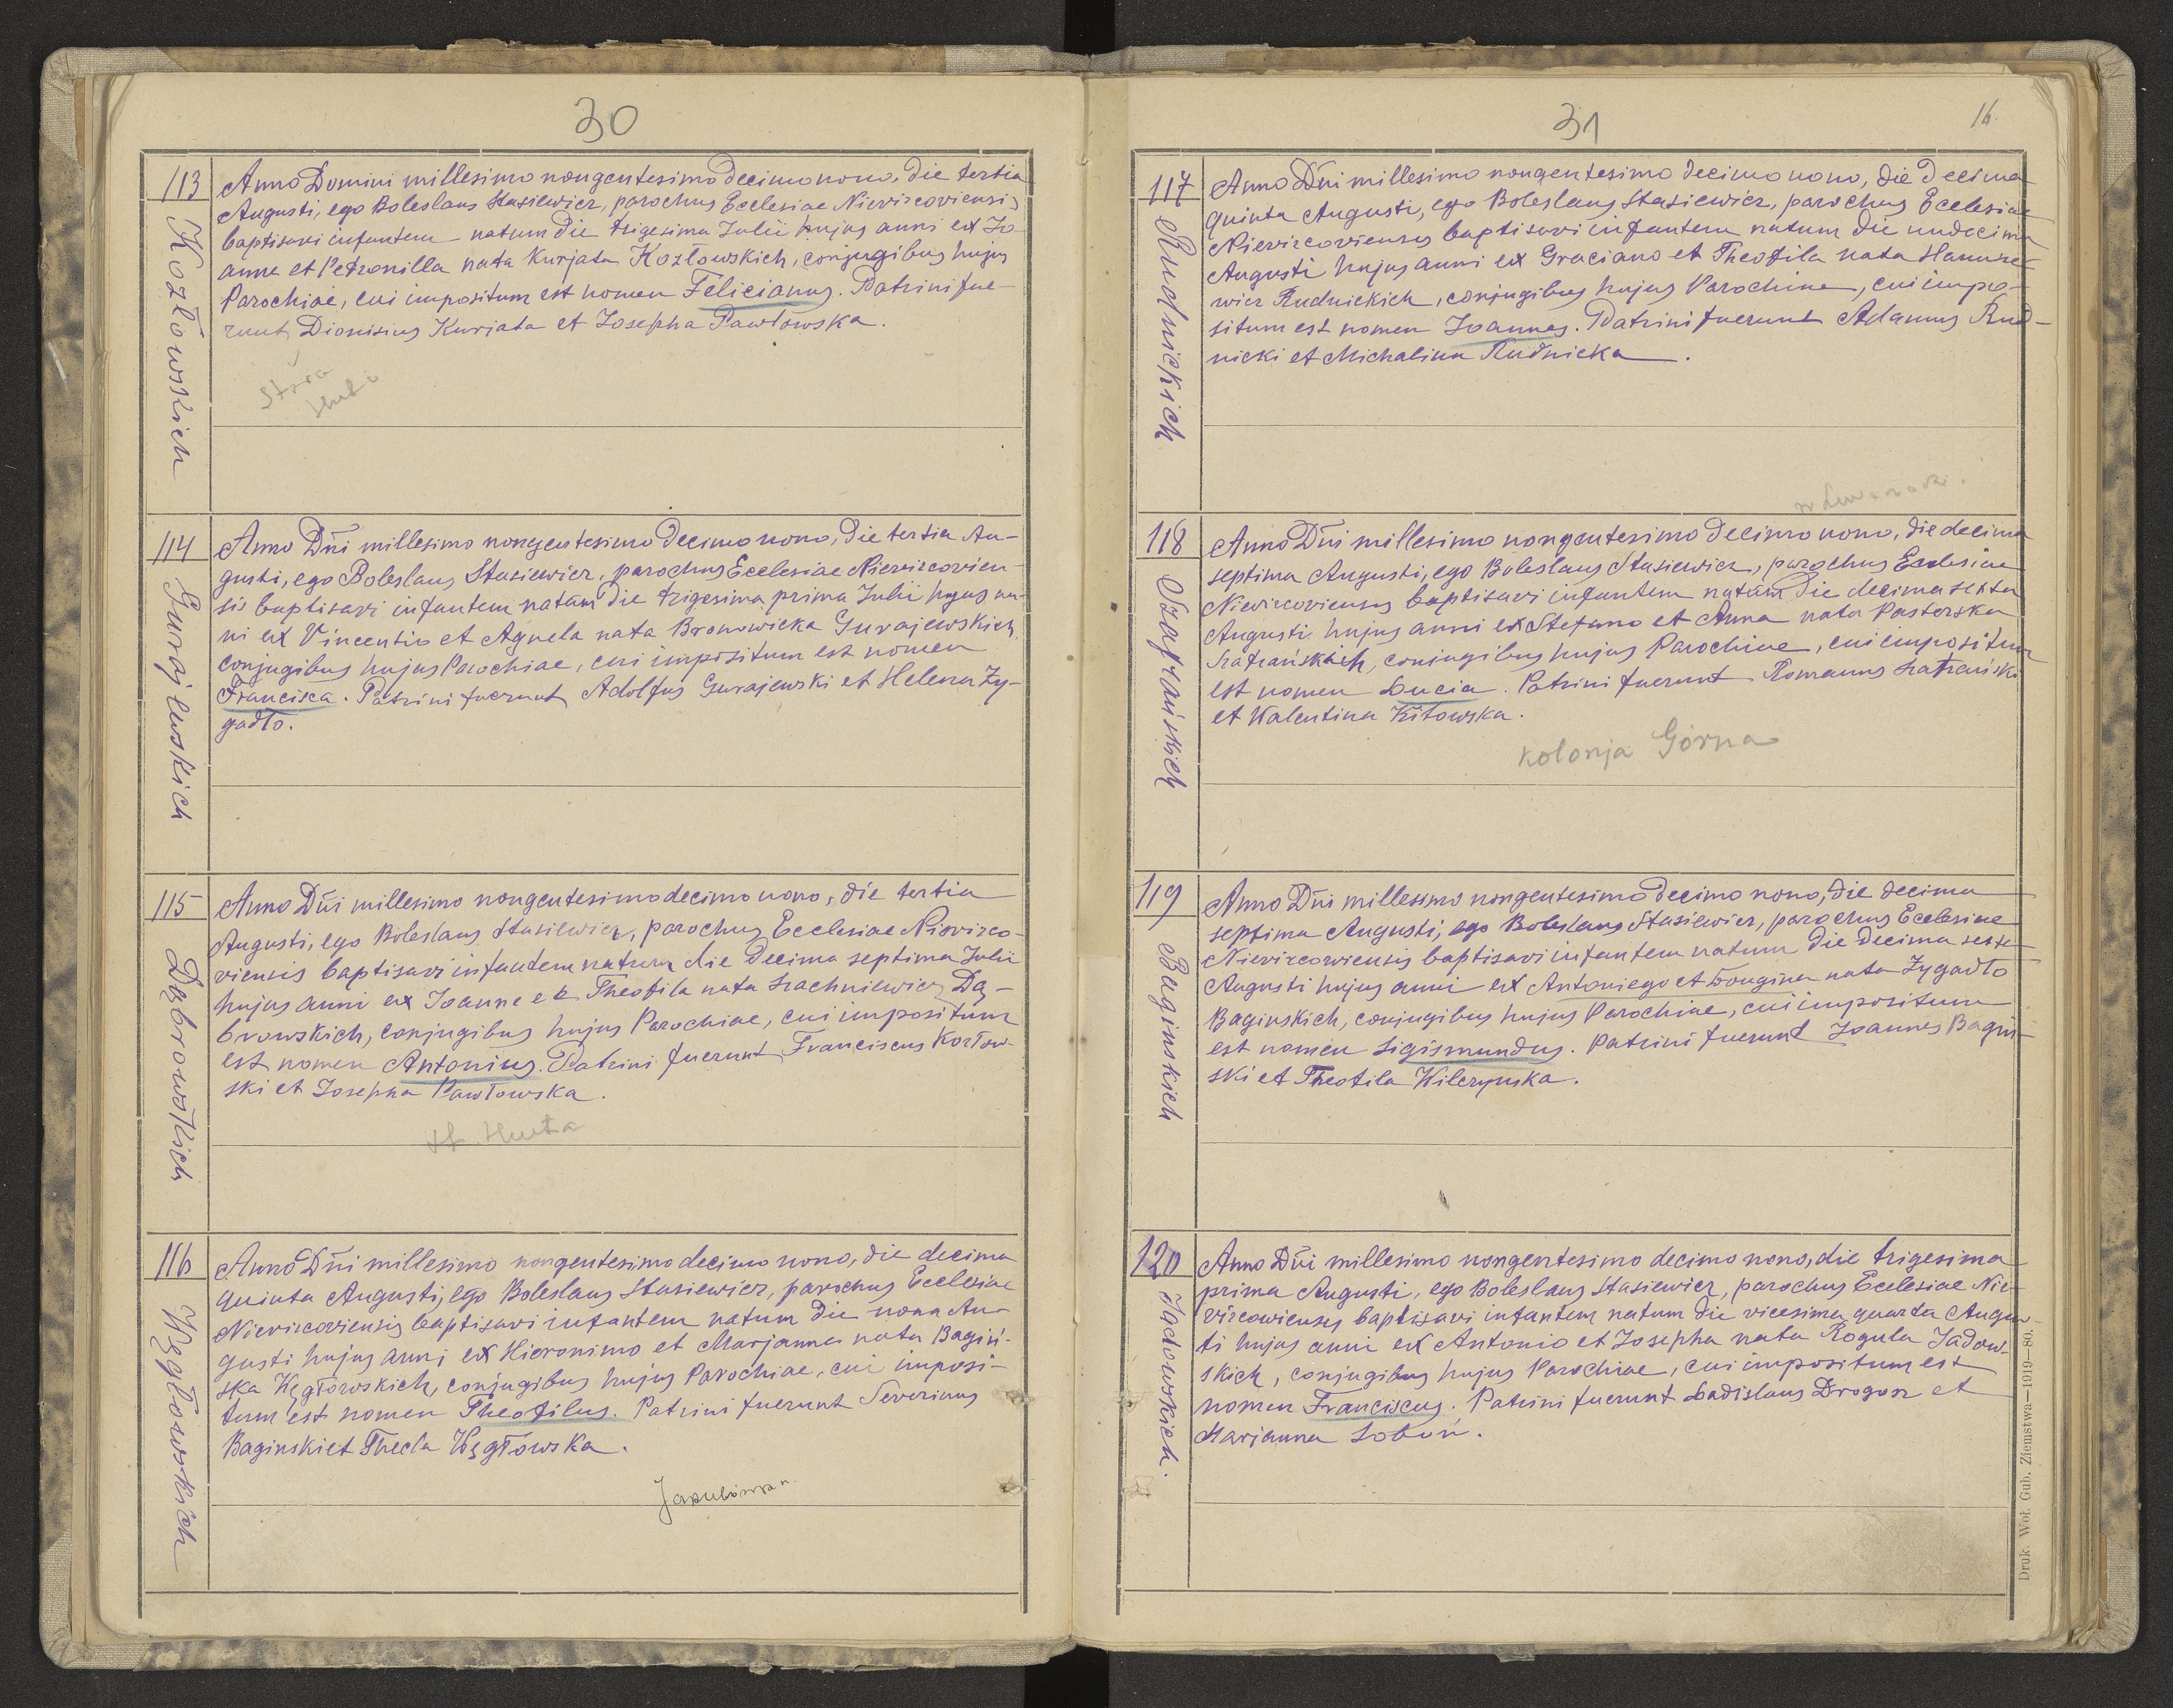 30
113
Kozłowskich
Anno Domini millesimo nongentesimo decimo nono, die tertia
Augusti, ego Boleslaus Stasiewicz, parochus Ecclesiae Nievircoviensis
baptisavi infantem natum die trigesima Julii hujus anni ex Jo
anne et Petronilla nata Kurjata Kozłowskich, conjugibus hujus
Parochiae, cui impositum est nomen Felicianus. Patrini fue-
runt Dionisius Kurjata et Josepha Pawłowska.
Stara
Huta
114
Gurajewskich
Anno Dñi millesimo nongentesimo decimo nono, die tertia Au-
gusti, ego Boleslaus Stasiewicz, parochus Ecclesiae Nievircovien-
sis baptisavi infantem natam die trigesima prima Julii hujus an-
ni ex Vincentio et Agnela nata Bronowicka Gurajewskich,
conjugibus hujus Parochiae, cui impositum est nomen
Francisca. Patrini fuerunt Adolfus Gurajewski et Helena Zy-
gadło.
115
Dąbrowskich
Anno Dñi millesimo nongentesimo decimo nono, die tertia
Augusti, ego Boleslaus Stasiewicz, parochus Ecclesiae Nievirco-
viensis baptisavi infantem natum die decima septima Julii
hujus anni ex Joanne et Theofila nata Szachniewicz Dą-
browskich, conjugibus hujus Parochiae, cui impositum
est nomen Antonius. Patrini fuerunt Franciscus Kozłow-
ski et Josepha Pawłowska.
st. Huta
116
Węgłowskich
Anno Dñi millesimo nongentesimo decimo nono, die decima
quinta Augusti, ego Boleslaus Stasiewicz, parochus Ecclesiae
Nievircoviensis baptisavi infantem natum die nona Au-
gusti hujus anni ex Hieronimo et Marjanna nata Bagiń-
ska Węgłowskich, conjugibus hujus Parochiae, cui imposi-
tum est nomen Theofilus. Patrini fuerunt Severinus
Baginski et Thecla Węgłowska.
31
16
117
Rudnickich
Anno Dñi millesimo nongentesimo decimo nono, die decima
quinta Augusti, ego Boleslaus Stasiewicz, parochus Ecclesiae
Nievircoviensis baptisavi infantem natum die undecima
Augusti hujus anni ex Graciano et Theofila nata Hanuse-
wicz Rudnickich, conjugibus hujus Parochiae, cui impo-
situm est nomen Joannes. Patrini fuerunt Adamus Rud-
nicki et Michalina Rudnicka.
118
Szafrańskich
Anno Dñi millesimo nongentesimo decimo nono, die decima
septima Augusti, ego Boleslaus Stasiewicz, parochus Ecclesiae
Nievircoviensis baptisavi infantem natam die decima sexta
Augusti hujus anni ex Stefano et Anna nata Pastorska
Szafrańskich, conjugibus hujus Parochiae, cui impositum
est nomen Lucia. Patrini fuerunt Romanus Szafrański
et Walentina Kitowska.
Kolonja Górna
119
Baginskich
Anno Dñi millesimo nongentesimo decimo nono, die decima
septima Augusti, ego Boleslaus Stasiewicz, parochus Ecclesiae
Nievircoviensis baptisavi infantem natum die decima sexta
Augusti hujus anni ex Antoniego et Longina nata Zygadło
Baginskich, conjugibus hujus Parochiae, cui impositum
est nomen Sigismundus. Patrini fuerunt Joannes Bagin-
ski et Theofila Wilczynska.
120
Jadowskich.
Anno Dñi millesimo nongentesimo decimo nono, die trigesima
prima Augusti, ego Boleslaus Stasiewicz, parochus Ecclesiae Nie-
vircoviensis baptisavi infantem natum die vicesima quarta Augus-
ti hujus anni ex Antonio et Josepha nata Rogula Jadow-
skich, conjugibus hujus Parochiae, cui impositum est
nomen Franciscus. Patrini fuerunt Ladislaus Drogosz et
Marjanna Soboń.
Druk. Woł. Gub. Ziemstwa—1919—80.